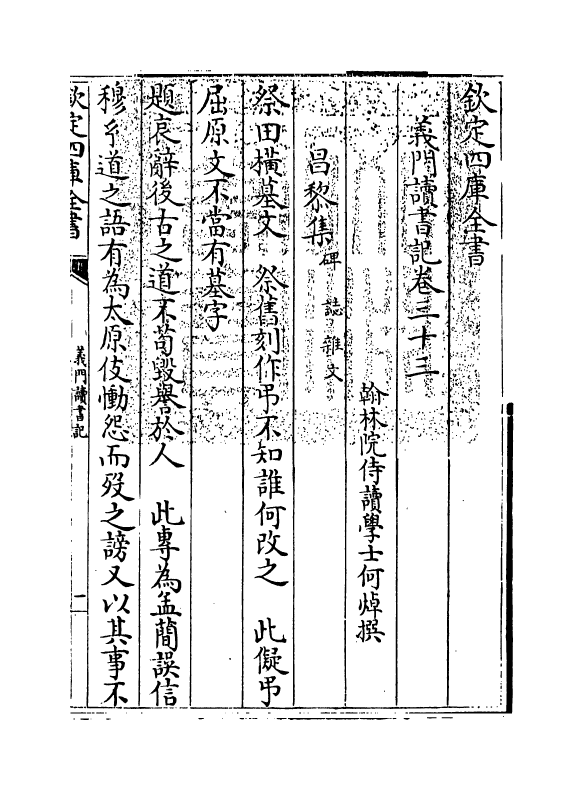 欽定四庫全書
義門讀書記卷三十三
翰林院侍讀學士何焯撰
昌黎集碑誌雜文
祭田橫墓文　祭舊刻作弔不知誰何改之　此儗弔
屈原文不當有墓字
題哀辭後古之道不苟毀譽於人　此專為孟簡誤信
穆𤣥道之語有為太原伎慟怨而歿之謗又以其事不
欽定四庫全書
義門讀書記
一